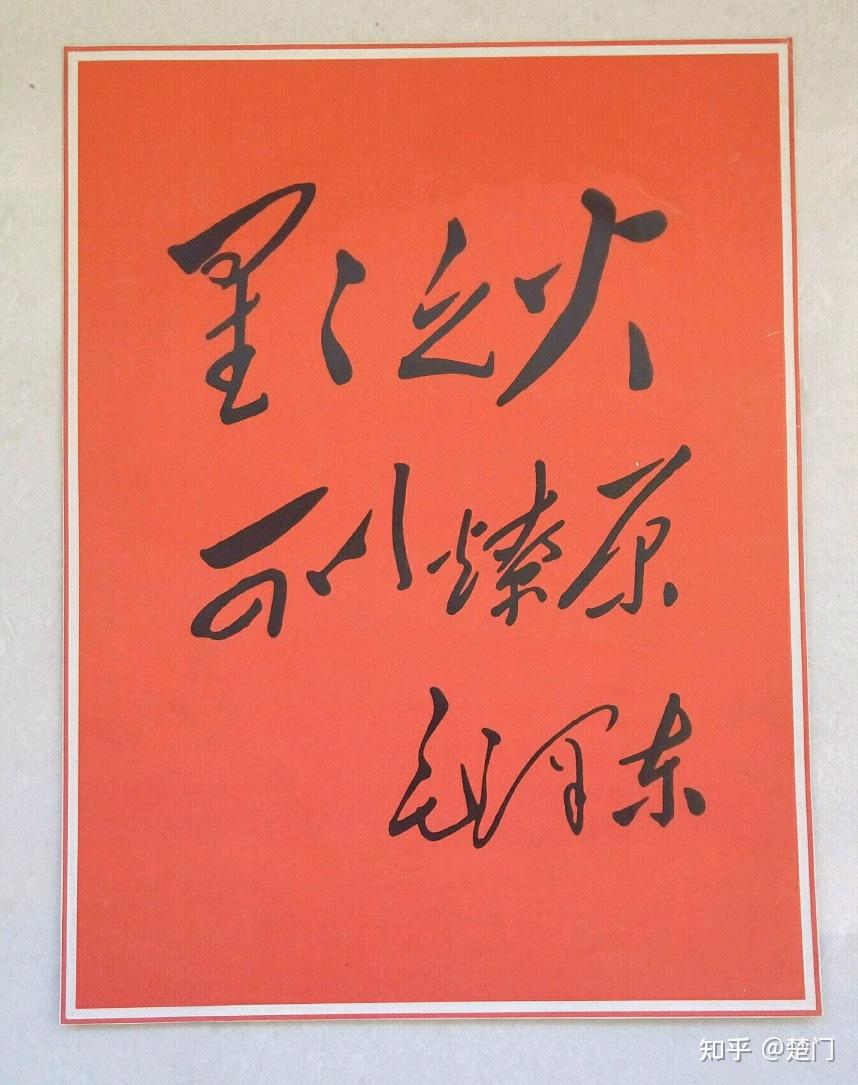 星星之火
可以燎原
毛泽东
知乎 @楚门